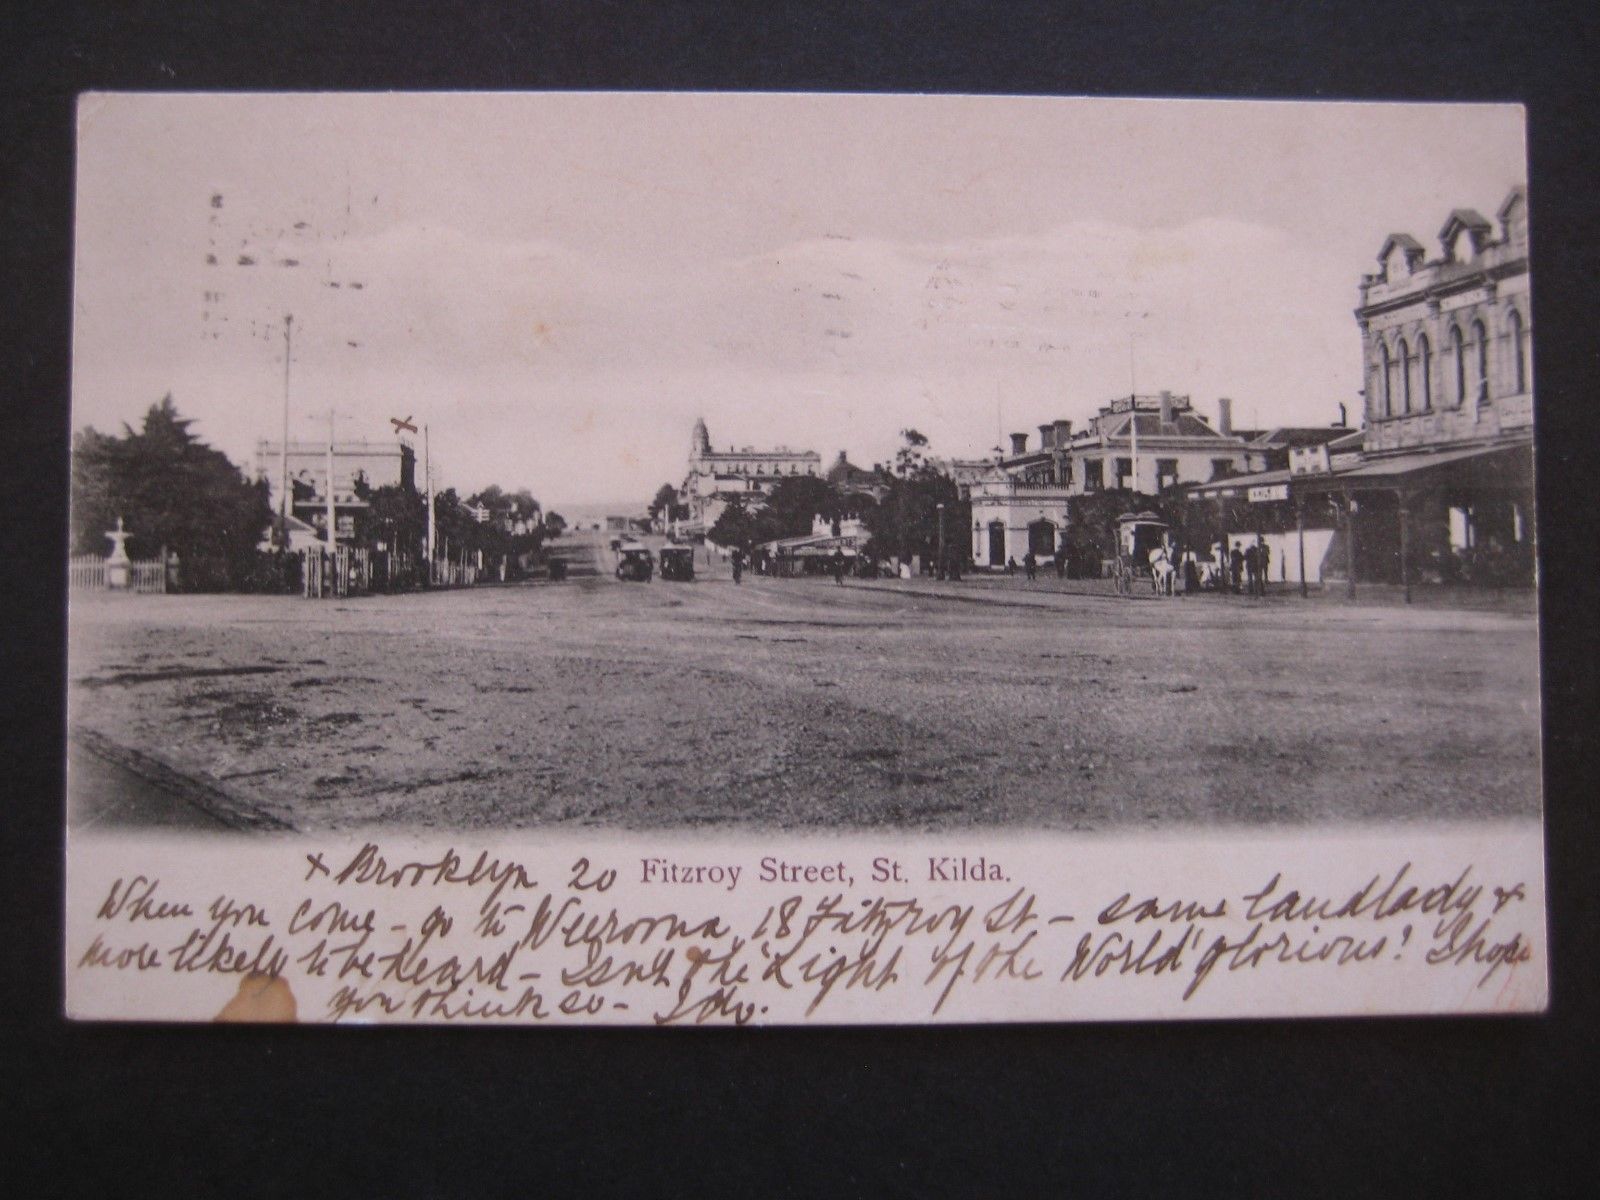 x Brooklyn 20 Fitzroy Street, St. Kilda.
When you come - go to Weeroona, 18 Fitzroy St - same landlady &
more likely to be heard - Isn't the 'Light of the World' glorious! I hope
you think so - I do.